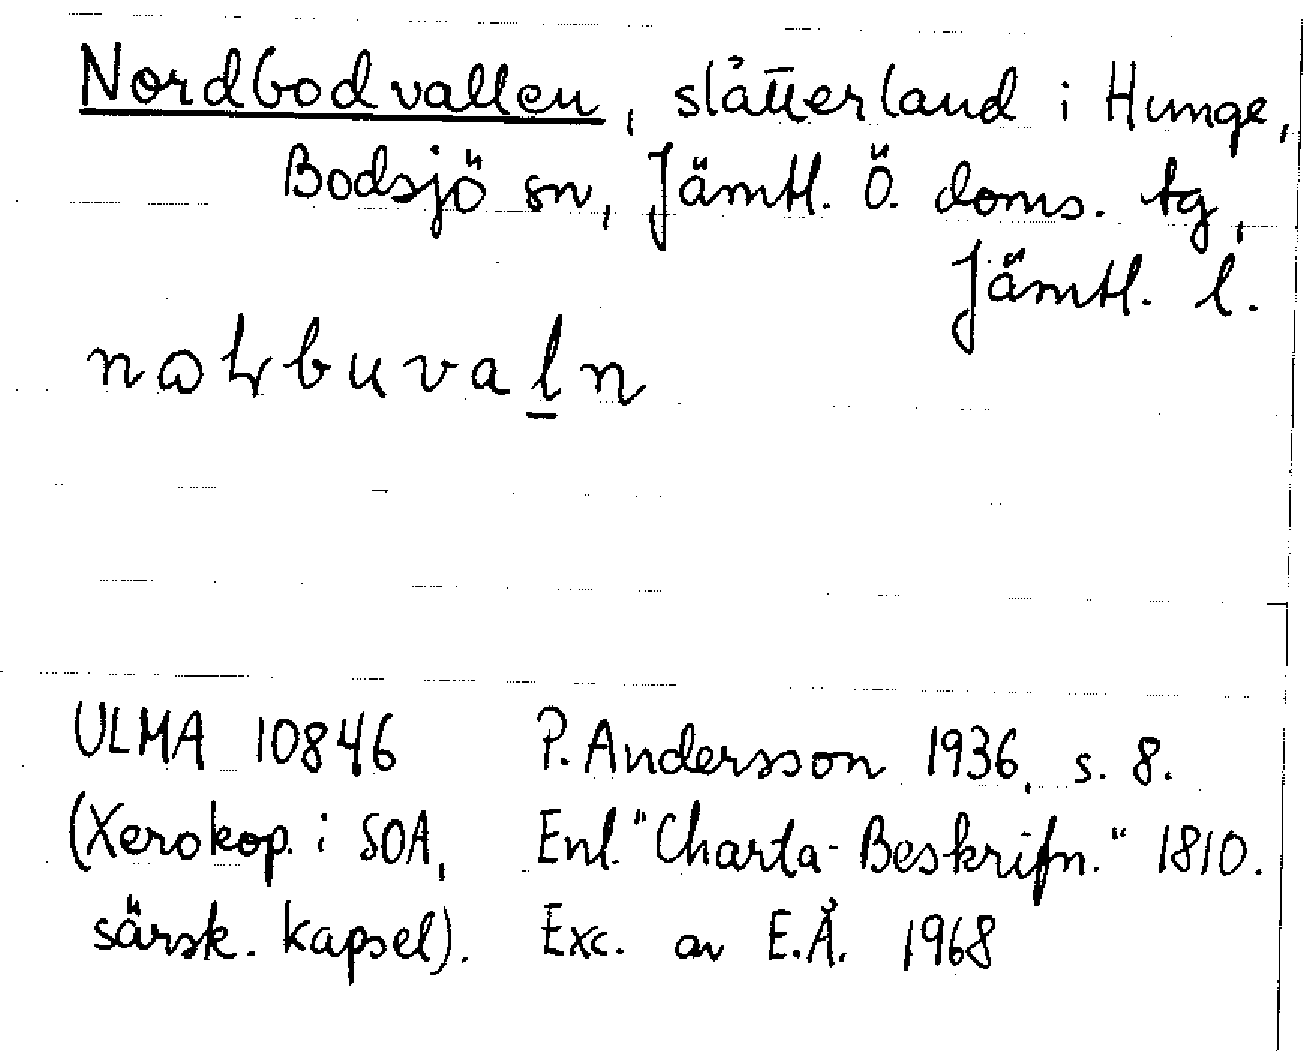 Nordbodvallen, slåtterland i Hunge,
Bodsjö sn, Jämtl. Ö. doms. tg,
Jämtl. l.
ULMA 10846 P. Andersson 1936, s. 8.
(Xerokop. i SOA, Enl. "Charta-Beskrifn." 1810.
särsk. kapsel). Exc. av E.Å. 1968